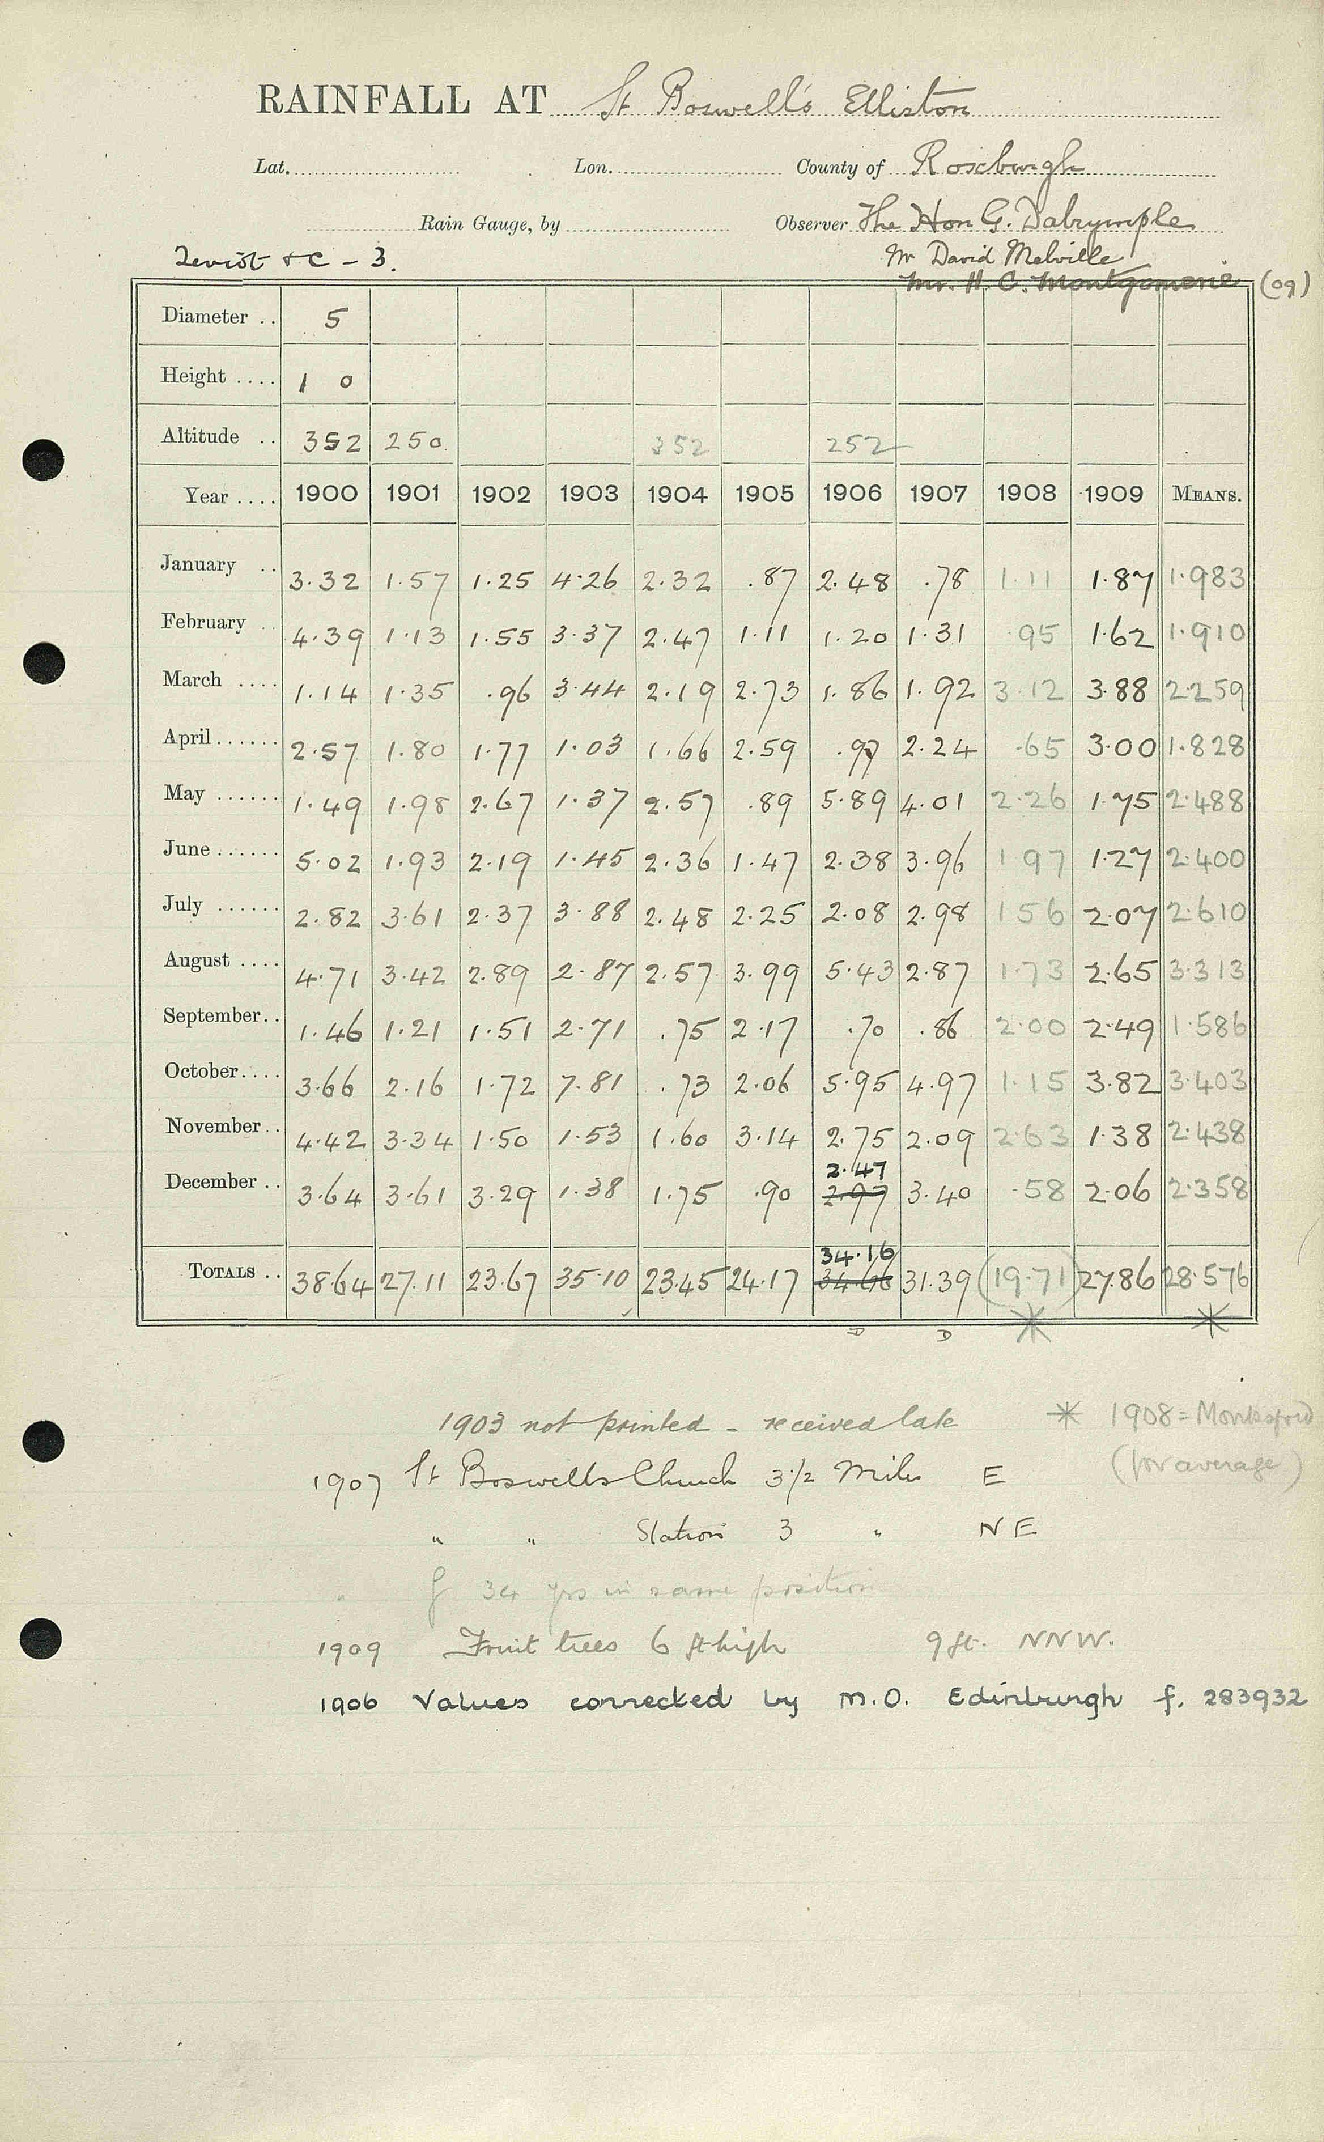 RAINFALL AT St Boswell's Elliston
Lat. Lon. County of Roxburgh
Rain Gauge, by Observer The Hon G. Dalrymple
Teviot & C - 3. Mr David Melville
Mr. H. C. Montgomerie (09)
Diameter .. 5
Height .... 1 0
Altitude .. 352 250 352 252
Year .... 1900 1901 1902 1903 1904 1905 1906 1907 1908 1909 MEANS.
January .. 3.32 1.57 1.25 4.26 2.32 .87 2.48 .78 1.11 1.87 1.983
February .. 4.39 1.13 1.55 3.37 2.47 1.11 1.20 1.31 .95 1.62 1.910
March .... 1.14 1.35 .96 3.44 2.19 2.73 1.86 1.92 3.12 3.88 2.259
April ...... 2.57 1.80 1.77 1.03 1.66 2.59 .97 2.24 .65 3.00 1.828
May ...... 1.49 1.98 2.67 1.37 2.57 .89 5.89 4.01 2.26 1.75 2.488
June ...... 5.02 1.93 2.19 1.45 2.36 1.47 2.38 3.96 1.97 1.27 2.400
July ...... 2.82 3.61 2.37 3.88 2.48 2.25 2.08 2.98 1.56 2.07 2.610
August .... 4.71 3.42 2.89 2.87 2.57 3.99 5.43 2.87 1.73 2.65 3.313
September .. 1.46 1.21 1.51 2.71 .75 2.17 .70 .86 2.00 2.49 1.586
October .... 3.66 2.16 1.72 7.81 .73 2.06 5.95 4.97 1.15 3.82 3.403
November .. 4.42 3.34 1.50 1.53 1.60 3.14 2.75 2.09 2.63 1.38 2.438
2.47
December .. 3.64 3.61 3.29 1.38 1.75 .90 2.97 3.40 .58 2.06 2.358
34.16
TOTALS .. 38.64 27.11 23.67 35.10 23.45 24.17 34.66 31.39 (19.71) 27.86 28.576
D D * *
1903 not printed - received late * 1908 = Monksford
1907 St Boswells Church 3 1/2 Miles E (for average)
" " Station 3 " NE
" 34 yrs in same position
1909 Fruit trees 6 ft high 9 ft. NNW.
1906 Values corrected by M.O. Edinburgh f. 283932